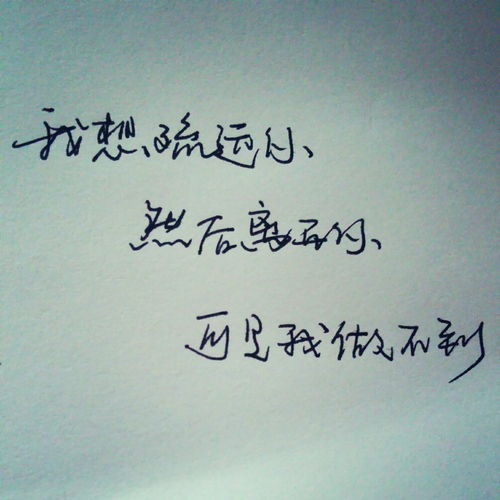 我想疏远你、
然后离开你、
可是我做不到